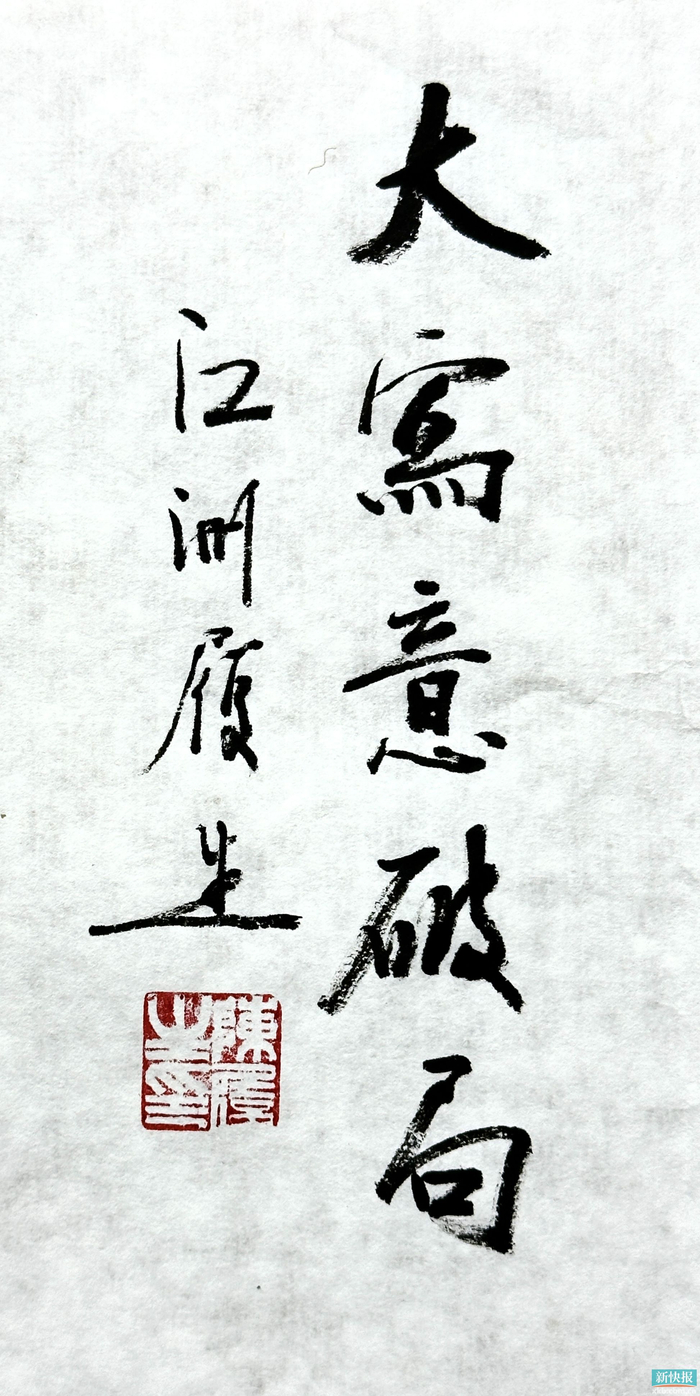 大寫意破局
江洲履生
陳履
生印
新快报